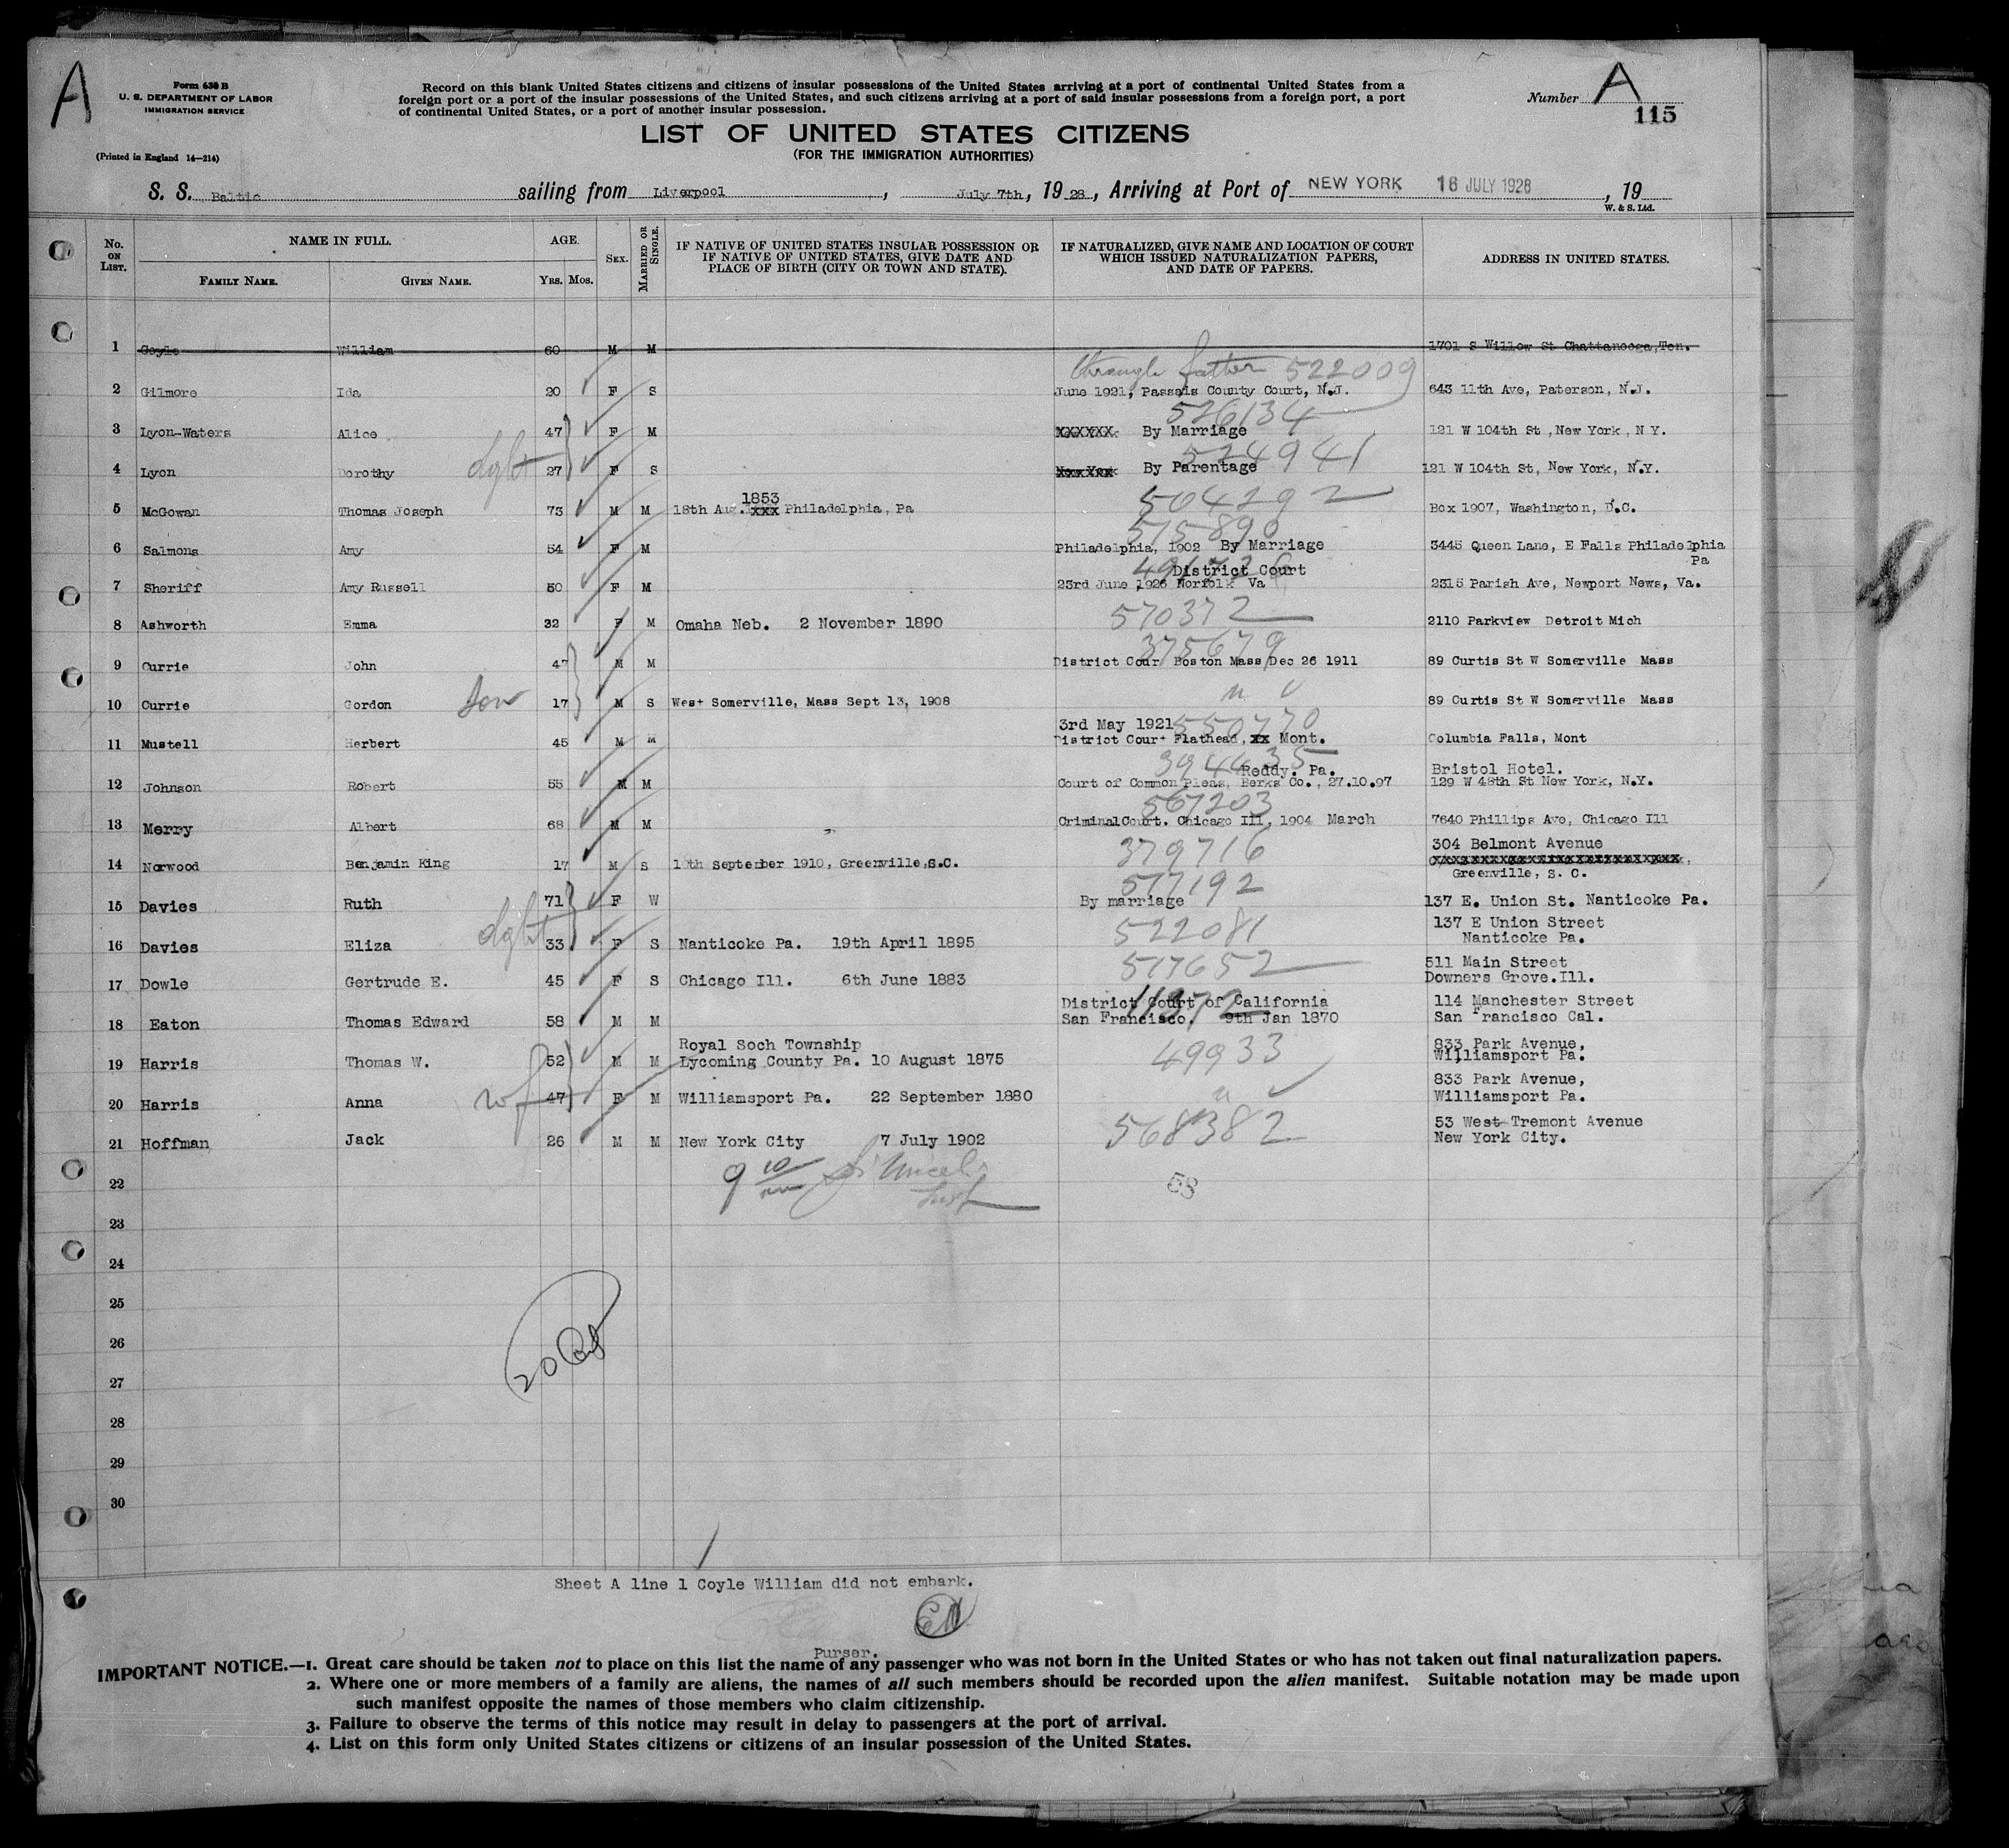 A
Form 630 B
U. S. DEPARTMENT OF LABOR
IMMIGRATION SERVICE
(Printed in England 14—214)
Record on this blank United States citizens and citizens of insular possessions of the United States arriving at a port of continental United States from a
foreign port or a port of the insular possessions of the United States, and such citizens arriving at a port of said insular possessions from a foreign port, a port
of continental United States, or a port of another insular possession.
Number A
115
LIST OF UNITED STATES CITIZENS
(FOR THE IMMIGRATION AUTHORITIES)
S. S. Baltic sailing from Liverpool, July 7th, 1928, Arriving at Port of NEW YORK 16 JULY 1928, 19
W. & S. Ltd.
No. ON LIST. NAME IN FULL. FAMILY NAME. GIVEN NAME. AGE. YRS. MOS. SEX. MARRIED OR SINGLE. IF NATIVE OF UNITED STATES INSULAR POSSESSION OR IF NATIVE OF UNITED STATES, GIVE DATE AND PLACE OF BIRTH (CITY OR TOWN AND STATE). IF NATURALIZED, GIVE NAME AND LOCATION OF COURT WHICH ISSUED NATURALIZATION PAPERS, AND DATE OF PAPERS. ADDRESS IN UNITED STATES.
1 Coyle William 60 M M 1701 S Willow St Chattanooga, Ten.
through father 522009
2 Gilmore Ida 20 F S June 1921, Passais County Court, N.J. 643 11th Ave, Paterson, N.J.
526134
3 Lyon-Waters Alice 47 F M XXXXXX. By Marriage 121 W 104th St, New York, N Y.
524941
4 Lyon Dorothy dght 27 F S By Parentage 121 W 104th St, New York, N.Y.
1853 504292
5 McGowan Thomas Joseph 73 M M 18th Aug. xxx Philadelphia, Pa Box 1907, Washington, D.C.
515890
6 Salmons Amy 54 F M Philadelphia, 1902 By Marriage 3445 Queen Lane, E Falls Philadelphia
Pa
District Court
7 Sheriff Amy Russell 50 F M 23rd June 1926 Norfolk Va 2315 Parish Ave, Newport News, Va.
8 Ashworth Emma 32 F M Omaha Neb. 2 November 1890 570372 2110 Parkview Detroit Mich
375679
9 Currie John 47 M M District Cour Boston Mass Dec 26 1911 89 Curtis St W Somerville Mass
10 Currie Gordon son 17 M S West Somerville, Mass Sept 13, 1908 89 Curtis St W Somerville Mass
3rd May 1921 550770
11 Mustell Herbert 45 M M District Court Flathead, xx Mont. Columbia Falls, Mont
394435 Reddy. Pa. Bristol Hotel.
12 Johnson Robert 55 M M Court of Common Pleas, Berks Co., 27.10.97 129 W 48th St New York, N.Y.
567203
13 Merry Albert 68 M M Criminal Court. Chicago Ill, 1904 March 7640 Phillips Ave, Chicago Ill
379716 304 Belmont Avenue
14 Norwood Benjamin King 17 M S 10th September 1910, Greenville, S.C.
Greenville, S. C.
577192
15 Davies Ruth 71 F W By marriage 137 E. Union St. Nanticoke Pa.
522081 137 E Union Street
16 Davies Eliza dght 33 F S Nanticoke Pa. 19th April 1895 Nanticoke Pa.
517652 511 Main Street
17 Dowle Gertrude E. 45 F S Chicago Ill. 6th June 1883 Downers Grove.Ill.
District Court of California 114 Manchester Street
18 Eaton Thomas Edward 58 M M San Francisco. 9th Jan 1870 San Francisco Cal.
11372
Royal Soch Township 833 Park Avenue,
19 Harris Thomas W. 52 M M Lycoming County Pa. 10 August 1875 49933 Williamsport Pa.
833 Park Avenue,
20 Harris Anna wf 47 F M Williamsport Pa. 22 September 1880 Williamsport Pa.
568382 53 West Tremont Avenue
21 Hoffman Jack 26 M M New York City 7 July 1902 New York City.
22 58
23
24
25
26
27
28
29
30
Sheet A line 1 Coyle William did not embark.
Purser.
IMPORTANT NOTICE.—1. Great care should be taken not to place on this list the name of any passenger who was not born in the United States or who has not taken out final naturalization papers.
2. Where one or more members of a family are aliens, the names of all such members should be recorded upon the alien manifest. Suitable notation may be made upon
such manifest opposite the names of those members who claim citizenship.
3. Failure to observe the terms of this notice may result in delay to passengers at the port of arrival.
4. List on this form only United States citizens or citizens of an insular possession of the United States.